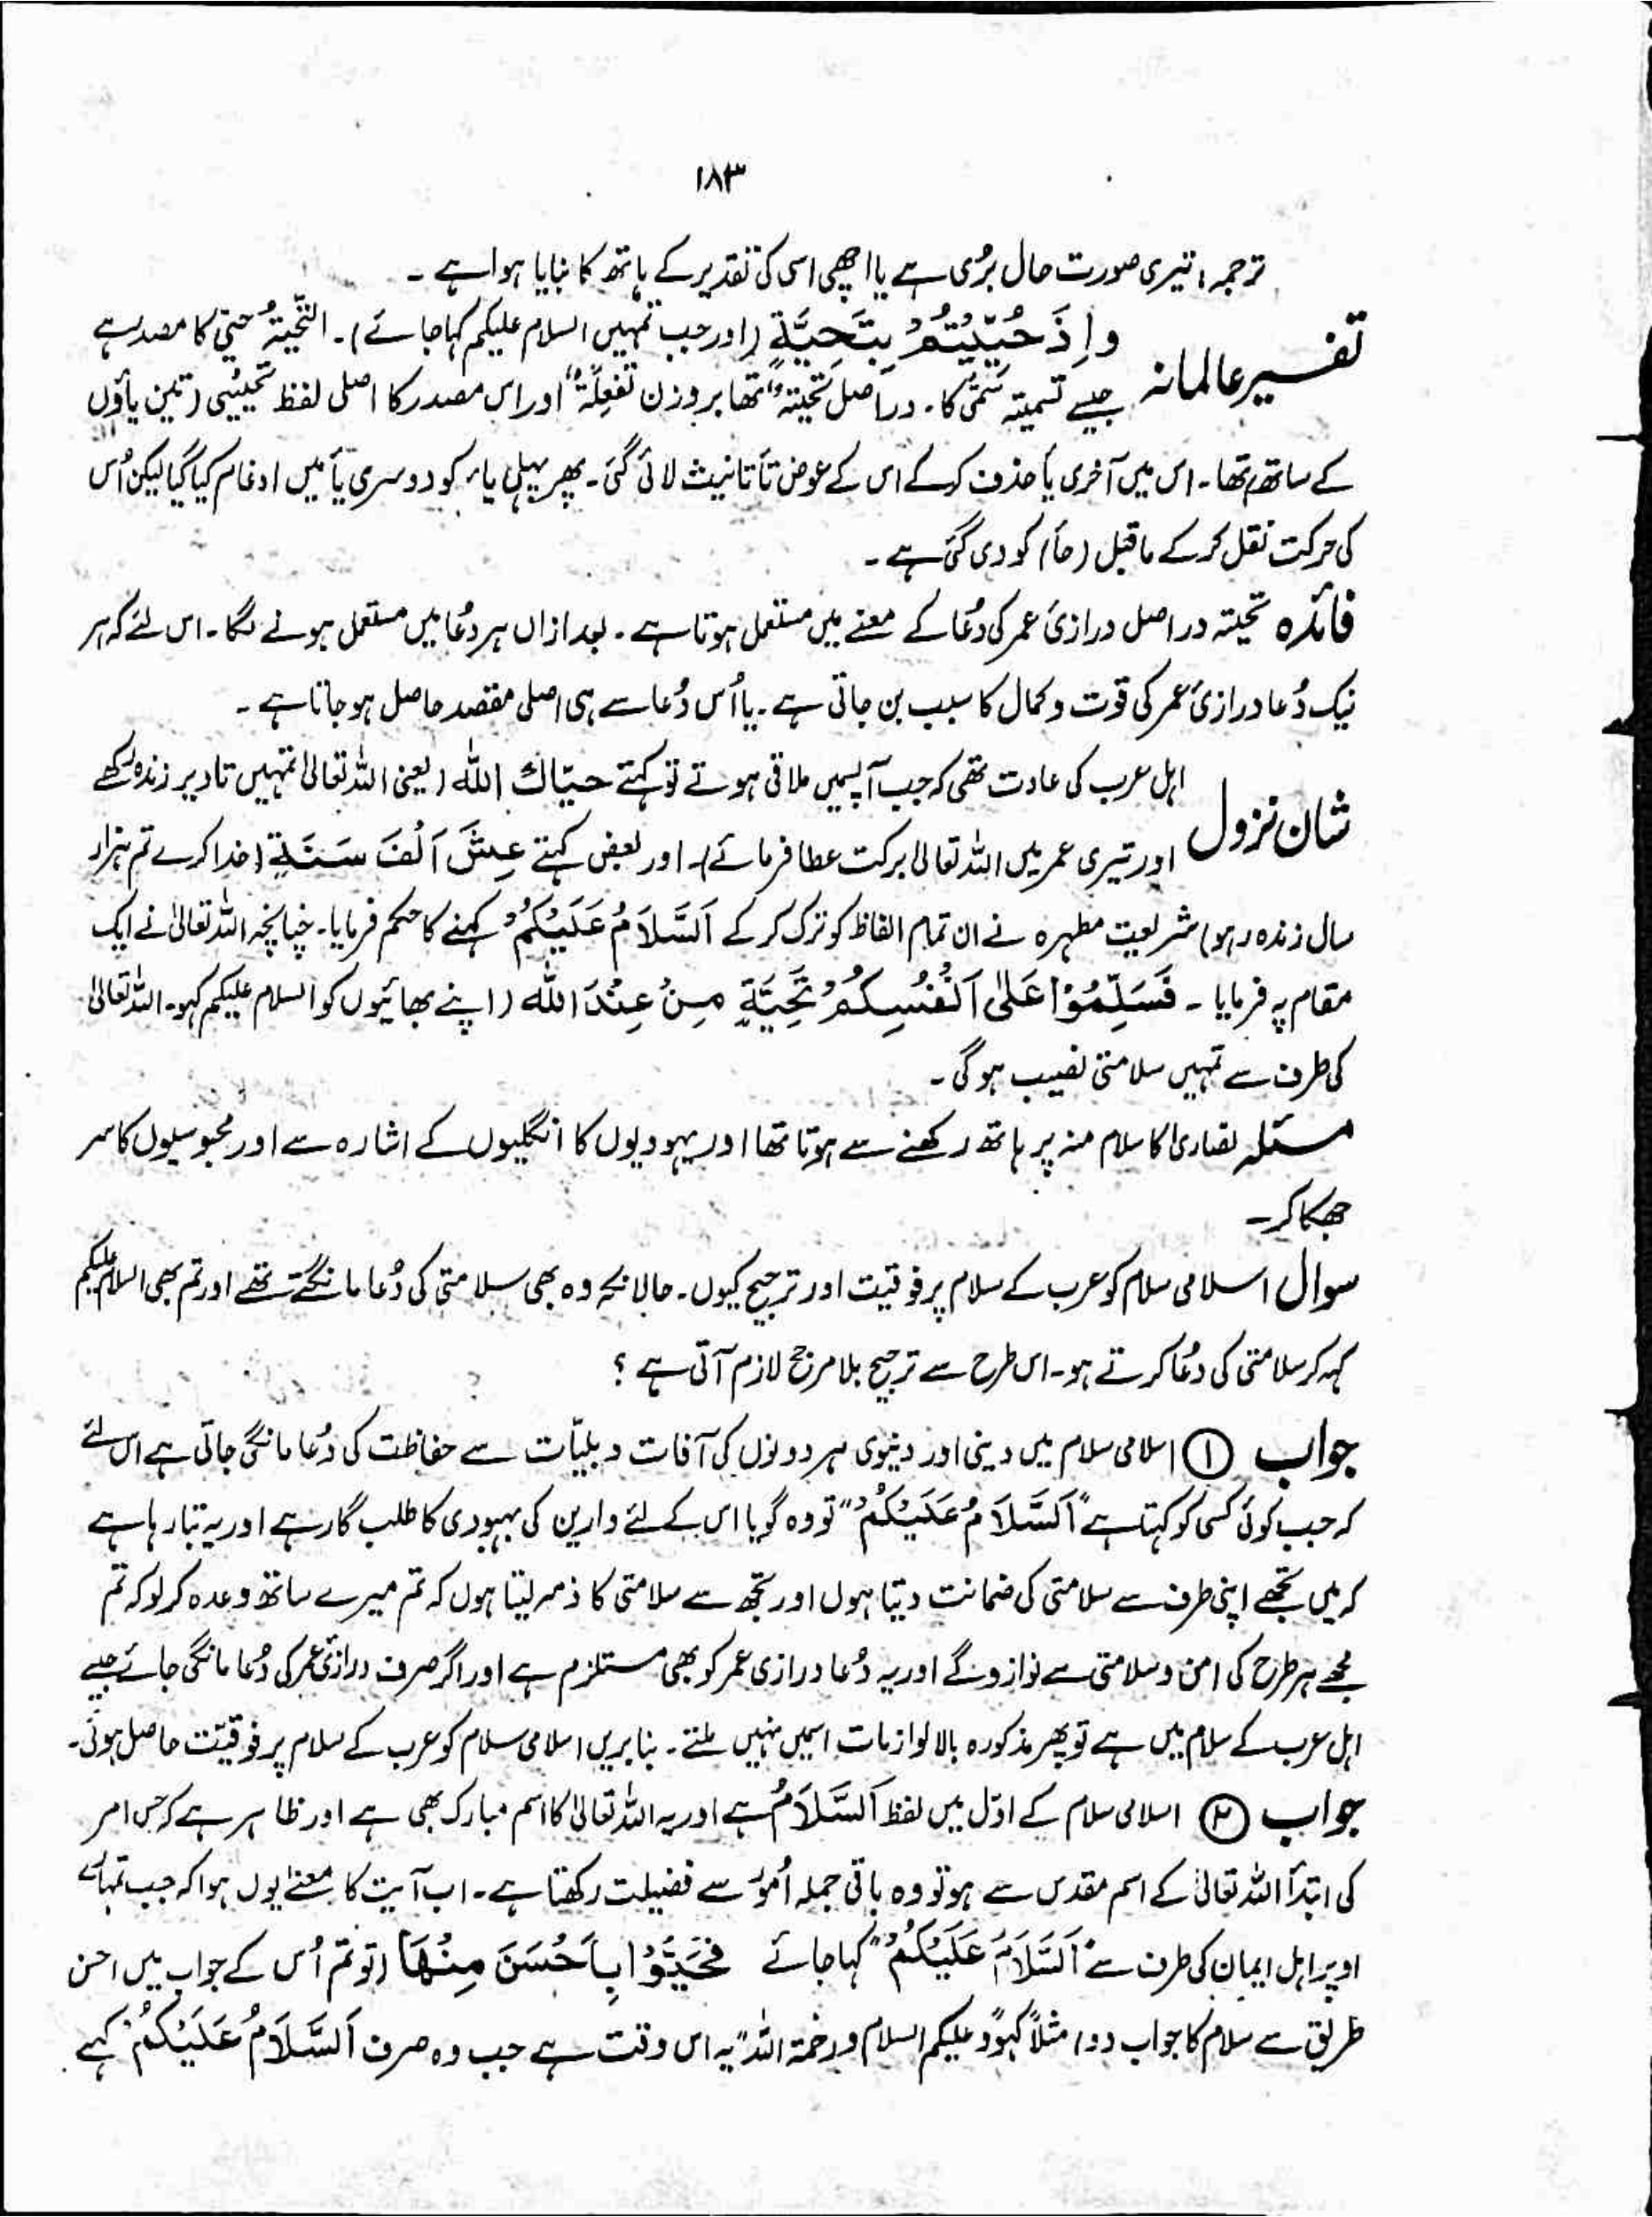 ۱۸۳
ترجمہ: تیری صورت حال بُری ہے یا اچھی اسی کی تقدیر کے ہاتھ کا بنایا ہوا ہے ۔
تفسیر عالمانہ
واِذَ حُیِّیْتُمْ بِتَحِیَّةٍ (اور جب تمہیں السلام علیکم کہا جائے)۔ التَّحِیَّۃُ حیّٰی کا مصدر ہے
جیسے تسمیتہ سَمّٰی کا۔ دراصل تحیتہ" تھا بروزن تَفْعِلَۃٌ" اور اس مصدر کا اصلی لفظ تحییی (تین یاؤں
کے ساتھ تھا۔ اس میں آخری یأ حذف کرکے اس کے عوض تأ تانیث لائی گئی۔ پھر پہلی یاء کو دوسری یأ میں ادغام کیا گیا لیکن اُس
کی حرکت نقل کرکے ماقبل (حأ) کو دی گئی ہے ۔
فائدہ تحیتہ دراصل درازئ عمر کی دُعا کے معنے میں مستعمل ہوتا ہے ۔ بعد ازاں ہر دُعا میں مستعمل ہونے لگا۔ اس لئے کہ ہر
نیک دُعا درازئ عمر کی قوت و کمال کا سبب بن جاتی ہے ۔ یا اُس دُعا سے ہی اصلی مقصد حاصل ہو جاتا ہے ۔
شان نزول
اہل عرب کی عادت تھی کہ جب آپسمیں ملاقی ہوتے تو کہتے حیّاك اللّٰه (یعنی اللہ تعالیٰ تمہیں تادیر زندہ رکھے
اور تیری عمر میں اللہ تعالیٰ برکت عطا فرمائے)۔ اور بعض کہتے عِشْ اَلْفَ سَنَةٍ (خدا کرے تم ہزار
سال زندہ رہو) شریعت مطہرہ نے ان تمام الفاظ کو ترک کرکے اَلسَّلَامُ عَلَیْکُمْ کہنے کا حکم فرمایا۔ چنانچہ اللہ تعالیٰ نے ایک
مقام پہ فرمایا ۔ فَسَلِّمُوْا عَلٰی اَنْفُسِکُمْ تَحِیَّةً مِنْ عِنْدَ اللّٰه (اپنے بھائیوں کو السلام علیکم کہو۔ اللہ تعالیٰ
کی طرف سے تمہیں سلامتی نصیب ہوگی ۔
مسئلہ نصاریٰ کا سلام منہ پر ہاتھ رکھنے سے ہوتا تھا اور یہودیوں کا انگلیوں کے اشارہ سے اور مجوسیوں کا سر
جھکا کر۔
سوال اسلامی سلام کو عرب کے سلام پر فوقیت اور ترجیح کیوں۔ حالانکہ وہ بھی سلامتی کی دُعا مانگتے تھے اور تم بھی السلام علیکم
کہہ کر سلامتی کی دُعا کرتے ہو۔ اس طرح سے ترجیح بلا مرجح لازم آتی ہے ؟
جواب ① اسلامی سلام میں دینی اور دنیوی ہر دونوں کی آفات و بلیّات سے حفاظت کی دُعا مانگی جاتی ہے اس لئے
کہ جب کوئی کسی کو کہتا ہے "اَلسَّلَامُ عَلَیْکُمْ" تو وہ گویا اس کے لئے دارین کی بہبودی کا طلب گار ہے اور یہ بتا رہا ہے
کہ میں تجھے اپنی طرف سے سلامتی کی ضمانت دیتا ہوں اور تجھ سے سلامتی کا ذمہ لیتا ہوں کہ تم میرے ساتھ وعدہ کر لو کہ تم
مجھے ہر طرح کی امن و سلامتی سے نوازو گے اور یہ دُعا درازی عمر کو بھی مستلزم ہے اور اگر صرف درازئ عمر کی دُعا مانگی جائے جیسے
اہل عرب کے سلام میں ہے تو پھر مذکورہ بالا لوازمات اسمیں نہیں ملتے۔ بنا بریں اسلامی سلام کو عرب کے سلام پر فوقیّت حاصل ہوئی۔
جواب ② اسلامی سلام کے اوّل میں لفظ اَلسَّلَامُ ہے اور یہ اللہ تعالیٰ کا اسم مبارک بھی ہے اور ظاہر ہے کہ جس امر
کی ابتدأ اللہ تعالیٰ کے اسم مقدس سے ہو تو وہ باقی جملہ اُمور سے فضیلت رکھتا ہے ۔ اب آیت کا معنے یوں ہوا کہ جب تمہارے
اوپر اہل ایمان کی طرف سے "اَلسَّلَامُ عَلَیْکُمْ" کہا جائے فَحَیُّوْا بِاَحْسَنَ مِنْهَا (تو تم اُس کے جواب میں احسن
طریق سے سلام کا جواب دو) مثلاً کہو "وعلیکم السلام ورحمۃ اللہ" یہ اس وقت ہے جب وہ صرف اَلسَّلَامُ عَلَیْکُمْ کہے